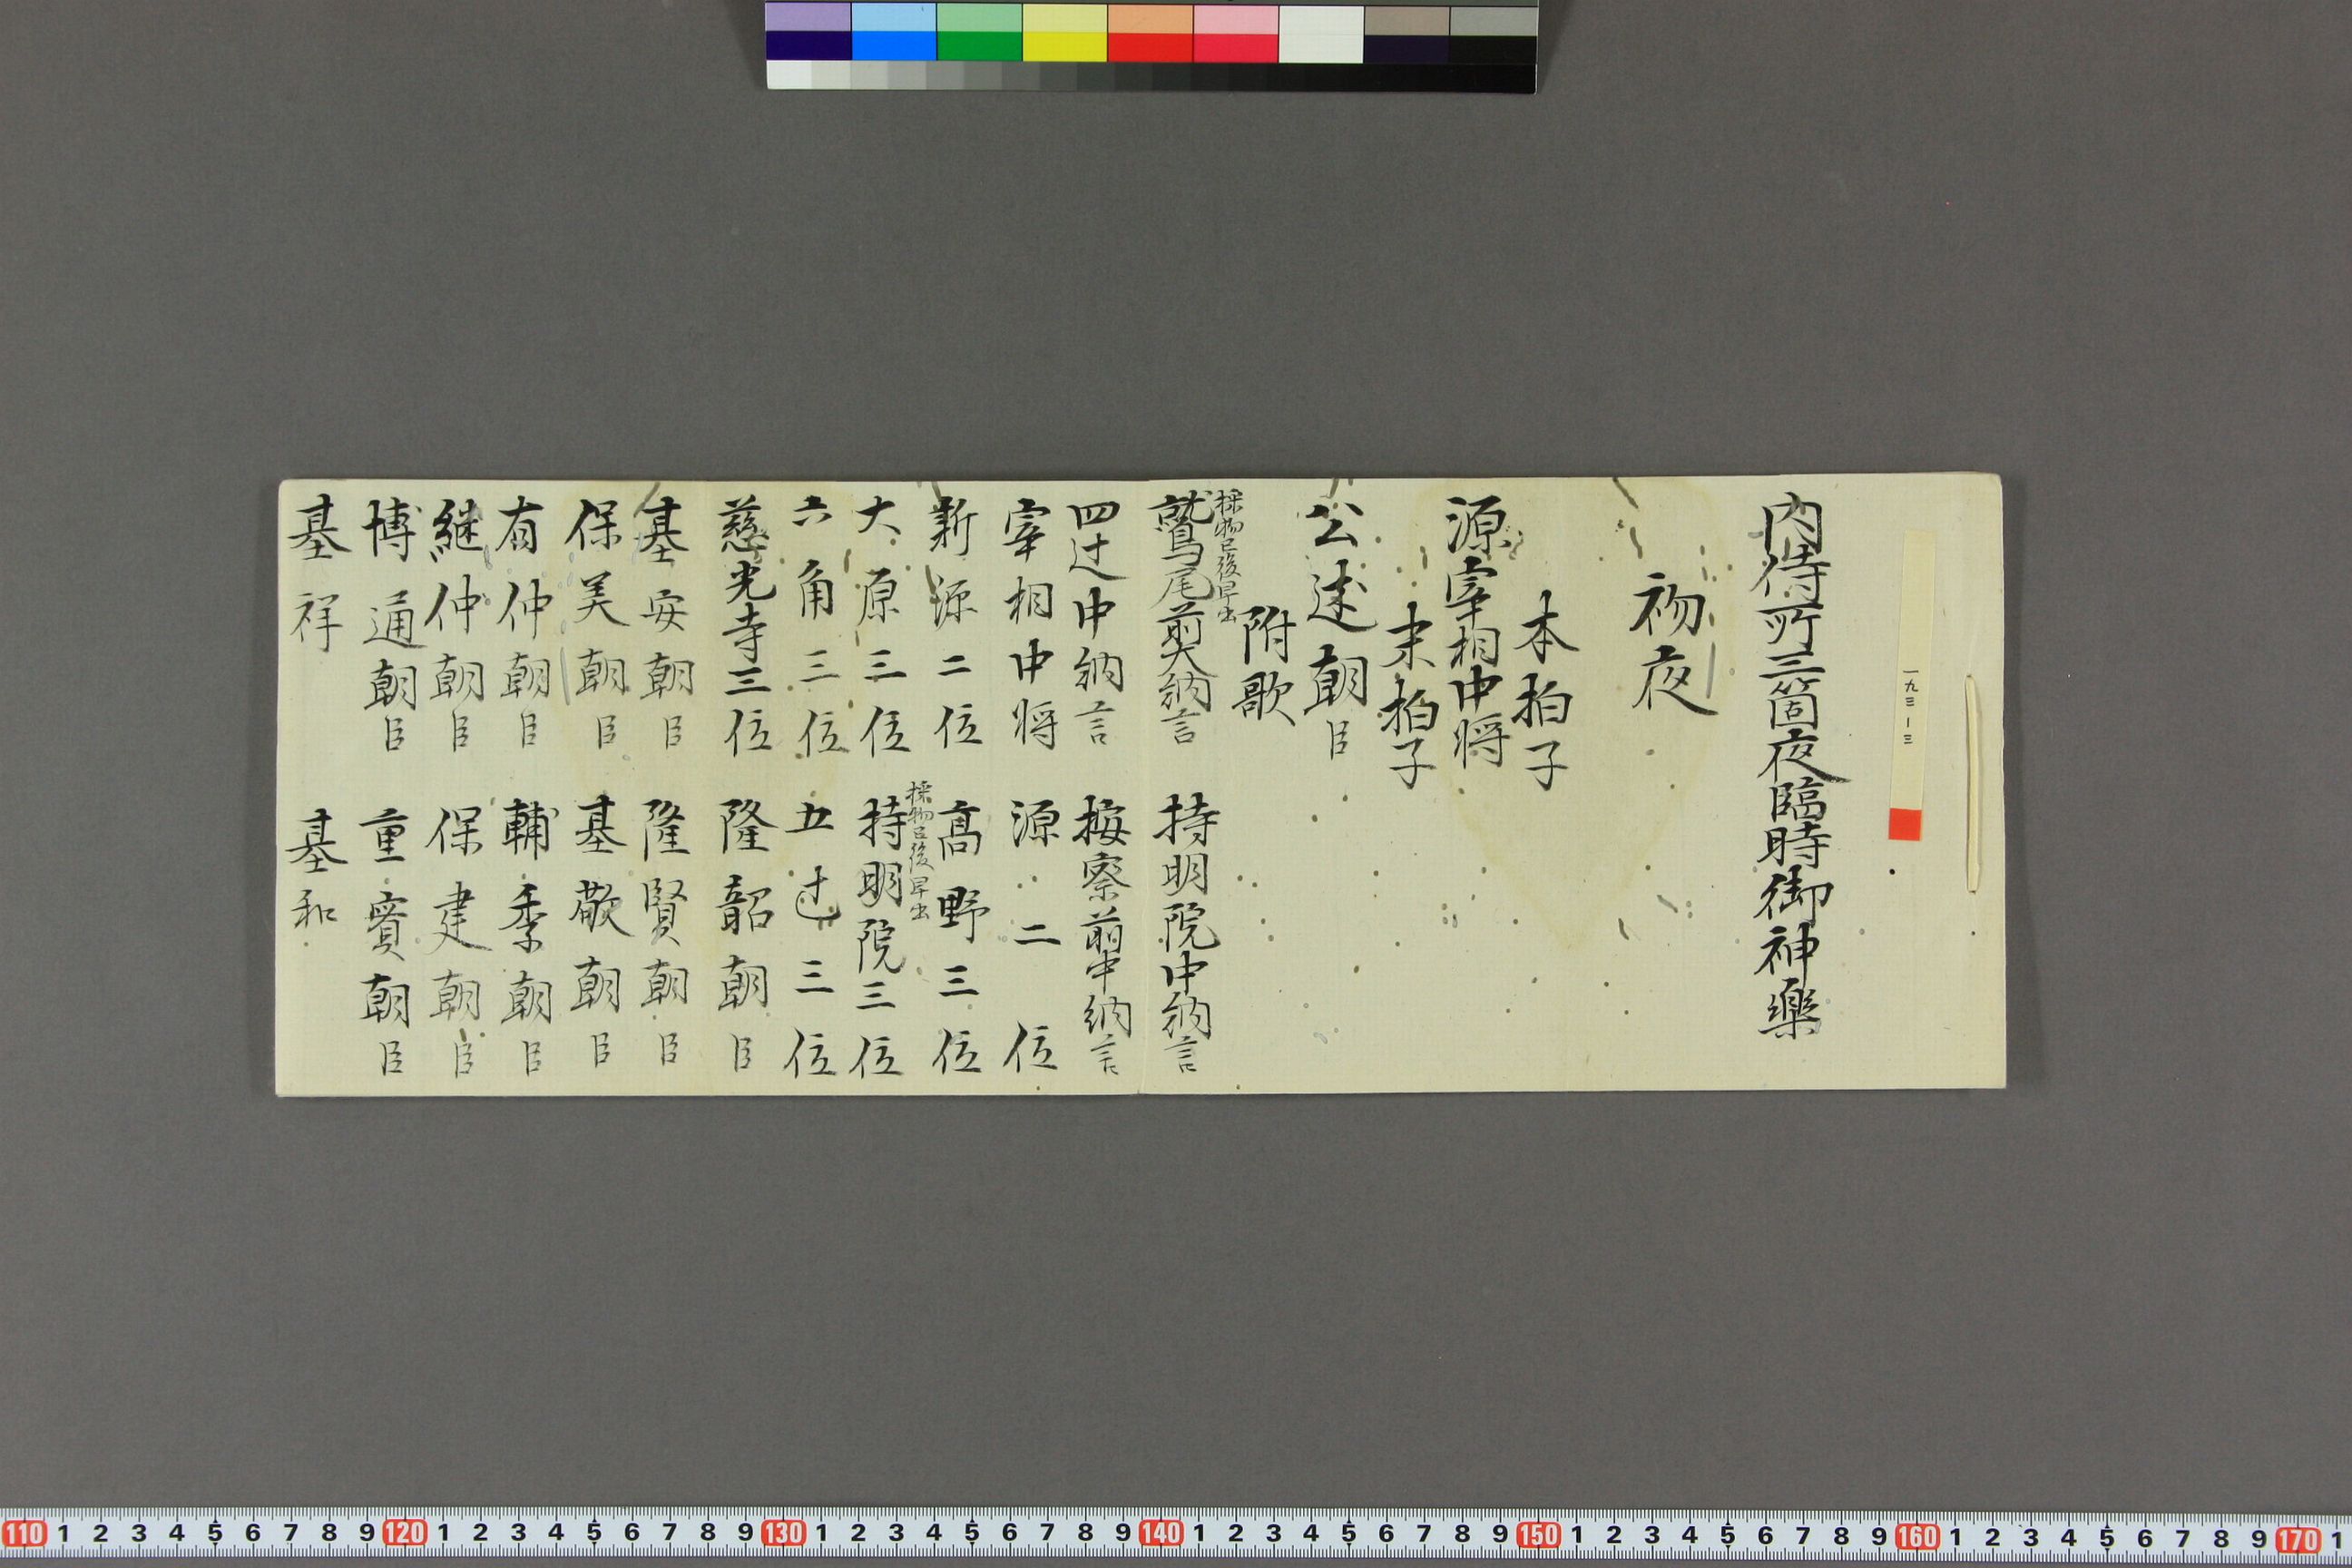 一九三ー三
内侍所三箇夜臨時御神樂
初夜
本拍子
源宰相中将
末拍子
公述朝臣
附歌
採物已後早出
鷲尾前大納言 持明院中納言
四辻中納言 按察前中納言
宰相中将 源二位
新源二位 高野三位
採物已後早出
大原三位 持明院三位
六角三位 五辻三位
慈光寺三位 隆韶朝臣
基安朝臣 隆賢朝臣
保美朝臣 基敬朝臣
有仲朝臣 輔季朝臣
継仲朝臣 保建朝臣
博通朝臣 重賓朝臣
基祥 基和
110 1 2 3 4 5 6 7 8 9 120 1 2 3 4 5 6 7 8 9 130 1 2 3 4 5 6 7 8 9 140 1 2 3 4 5 6 7 8 9 150 1 2 3 4 5 6 7 8 9 160 1 2 3 4 5 6 7 8 9 170 1